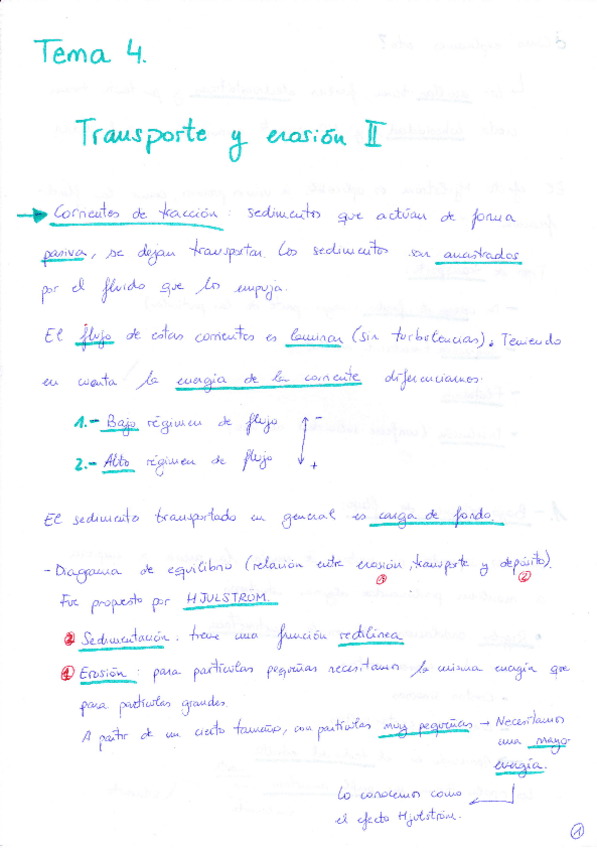 Tema 4.
Transporte y erosión II
→ Corrientes de tracción: sedimentos que actúan de forma
pasiva, se dejan transportar. Los sedimentos son arrastrados
por el fluido que los empuja.
El flujo de estas corrientes es laminar (sin turbulencias). Teniendo
en cuenta la energía de la corriente diferenciamos:
1.- Bajo régimen de flujo -
2.- Alto régimen de flujo +
El sedimento transportado en general es carga de fondo.
- Diagrama de equilibrio (relación entre erosión, transporte y depósito).
Fue propuesto por HJULSTROM.
2 Sedimentación: tiene una función rectilínea
1 Erosión: para partículas pequeñas necesitamos la misma energía que
para partículas grandes.
A partir de un cierto tamaño, con partículas muy pequeñas → Necesitamos
una mayor
energía.
Lo conocemos como
el efecto Hjulström.
1